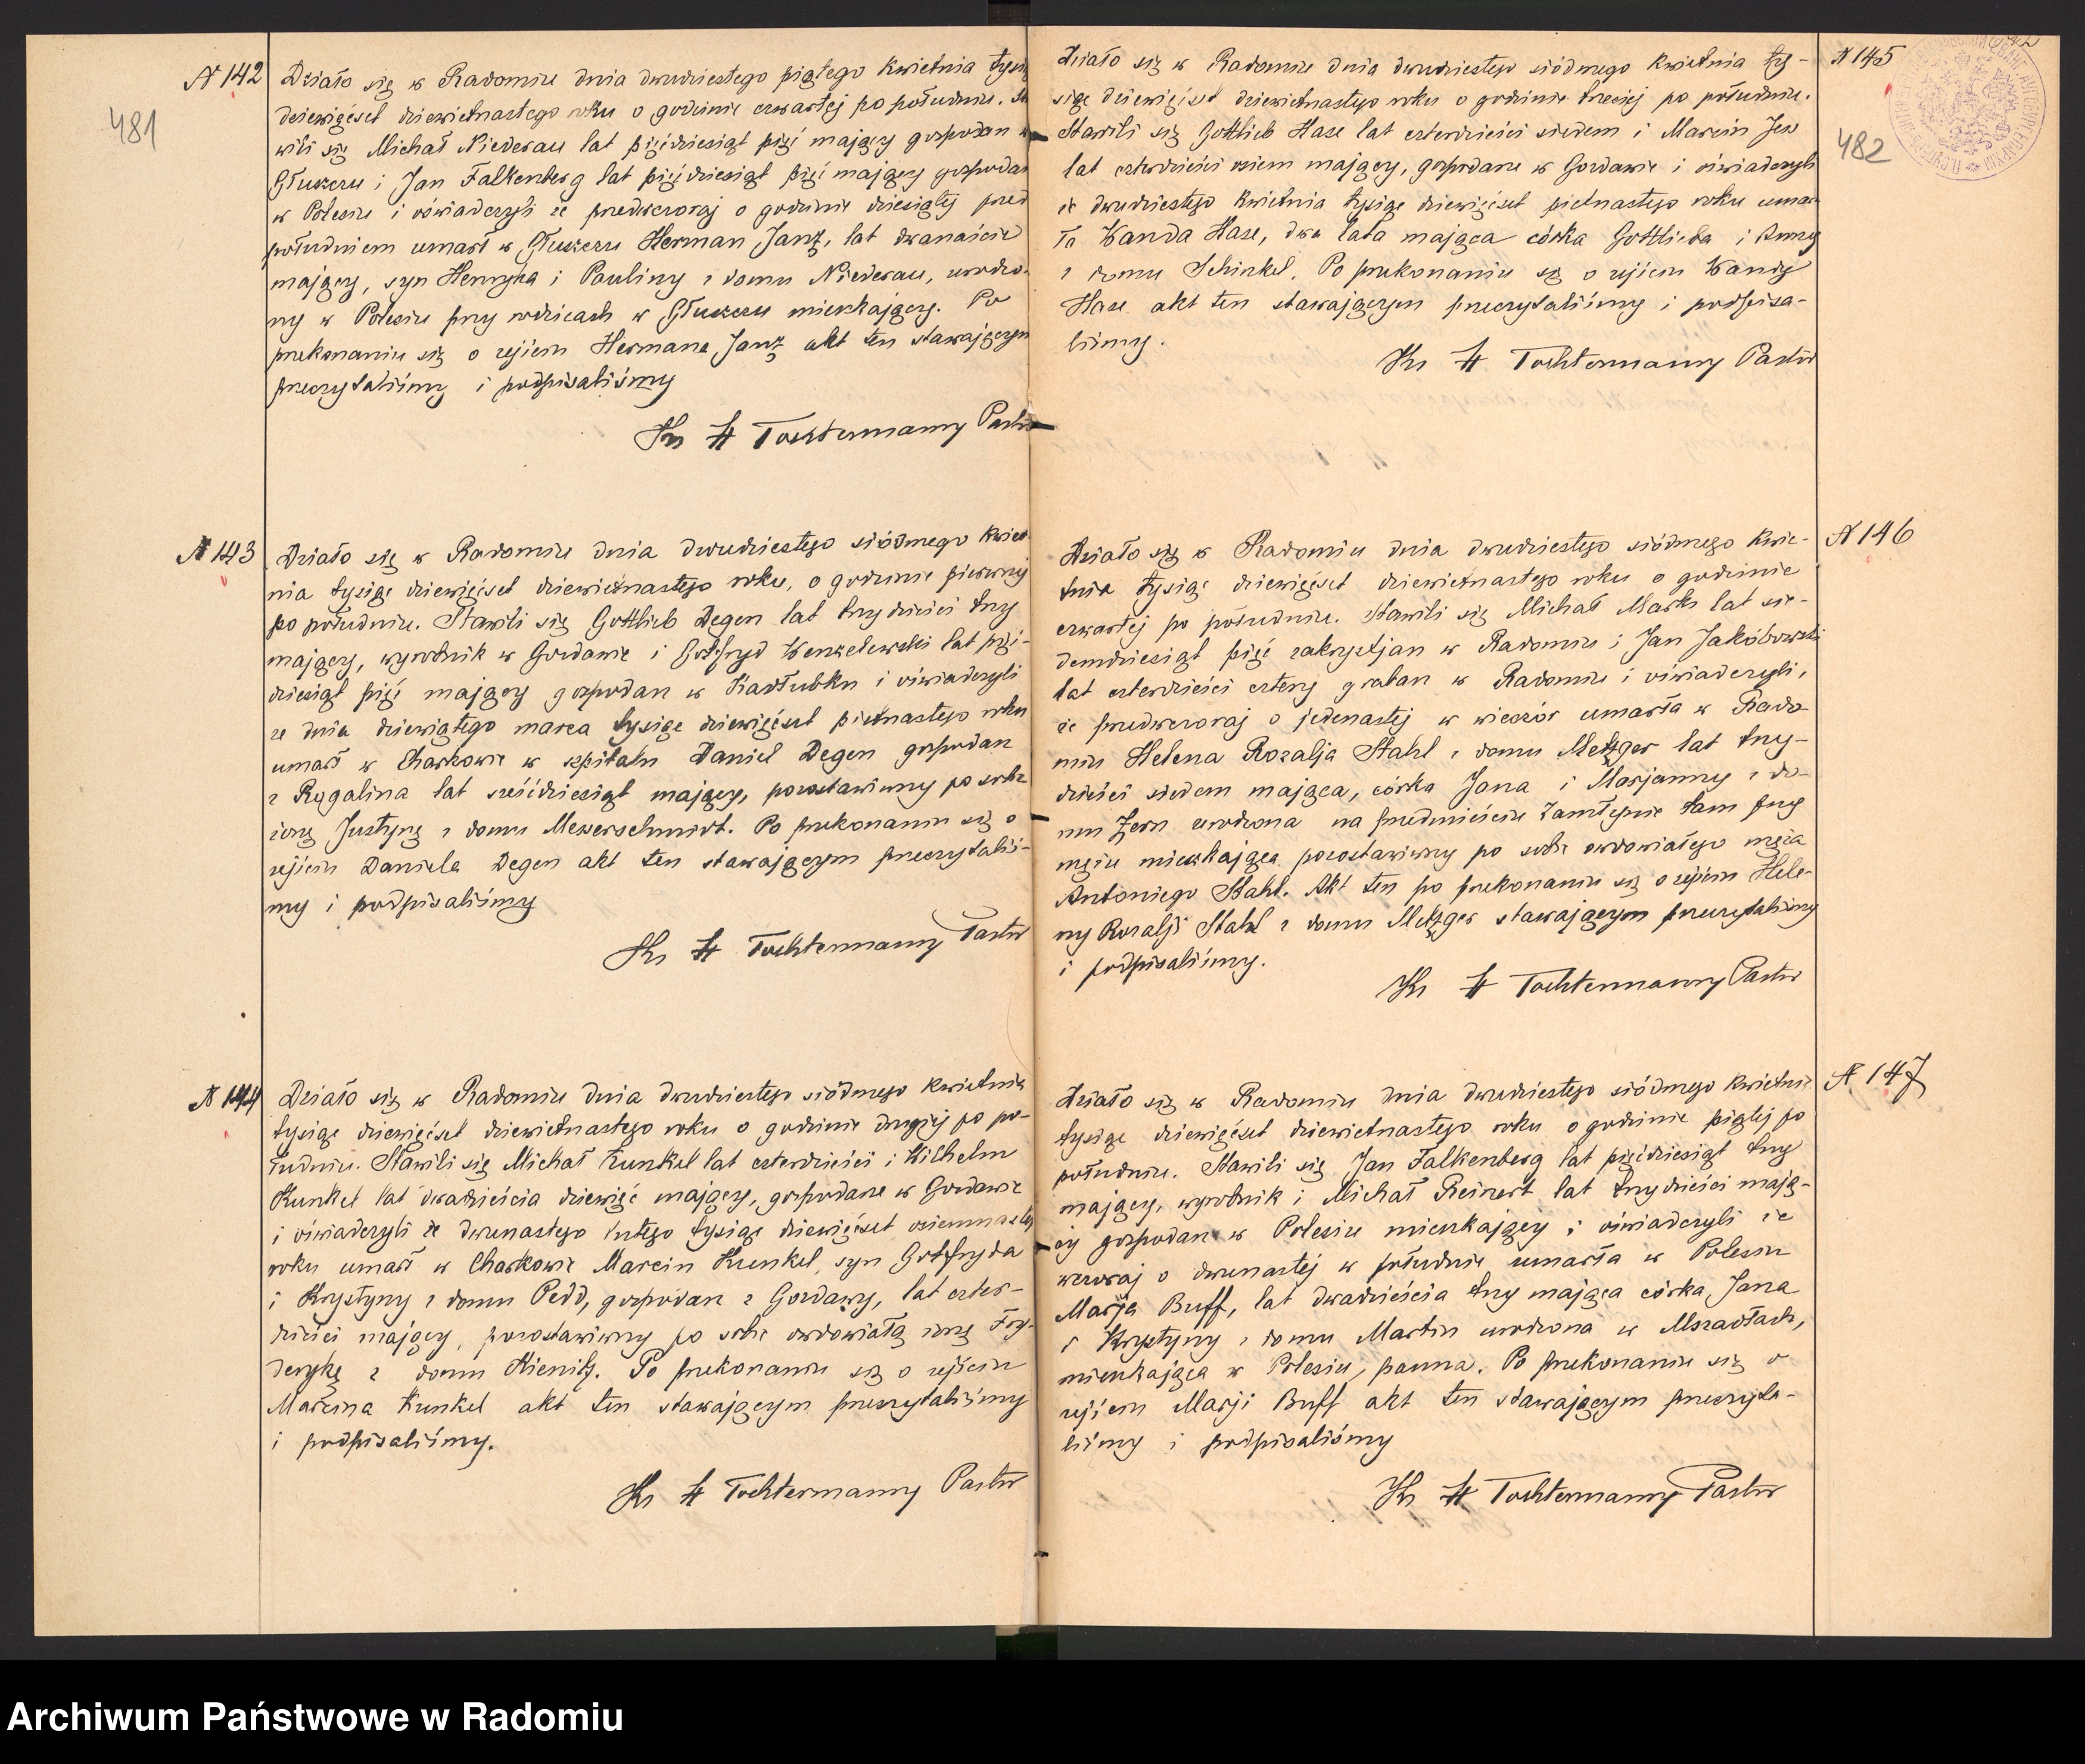 N 142
481
Działo się w Radomiu dnia dwudziestego piątego Kwietnia tysią
dziewięćset dziewietnastego roku o godzinie czwartej po południu. Sta
wili się Michał Niederau lat pięćdziesiąt pięć mający gospodarz w
Głuszcu i Jan Falkenberg lat pięćdziesiąt pięć mający gospodarz
w Polesiu i oświadczyli że przedwczoraj o godzinie dziesiątej przed
południem umarł w Głuszcu Herman Janz, lat dwanaście
mający, syn Henryka i Pauliny z domu Niederau, urodzo-
ny w Polesiu przy rodzicach w Głuszcu mieszkający. Po
przekonaniu się o zejściu Hermana Janz akt ten stawającym
przeczytaliśmy i podpisaliśmy
Ks H Tochtermann Pastor
N 143
Działo się w Radomiu dnia dwudziestego siódmego kwiet
nia tysiąc dziewięćset dziewietnastego roku, o godzinie pierwszej
po południu. Stawili się Gottlieb Degen lat trzydzieści trzy
mający, wyrobnik w Gozdawie i Gotfryd Wenzelewski lat pięć-
dziesiąt pięć mający gospodarz w Kadłubku i oświadczyli
że dnia dziewiątego marca tysiąc dziewięćset piętnastego roku
umarł w Charkowie w szpitalu Daniel Degen gospodarz
z Rogalina lat sześćdziesiąt mający, pozostawiwszy po sobie
żonę Justynę z domu Messerschmidt. Po przekonaniu się o
zejściu Daniela Degen akt ten stawającym przeczytaliś-
my i podpisaliśmy
Ks H Tochtermann Pastor
N 144
Działo się w Radomiu dnia dwudziestego siódmego kwietnia
tysiąc dziewięćset dziewietnastego roku o godzinie drugiej po po-
łudniu. Stawili się Michał Kunkel lat czterdzieści i Wilhelm
Kunkel lat dwadzieścia dziewięć mający, gospodarze w Gozdawie
i oświadczyli że dwunastego lutego tysiąc dziewięćset osiemnastego
roku umarł w Charkowie Marcin Kunkel, syn Gotfryda
i Krystyny z domu Pedd, gospodarz z Gozdawy, lat czter-
dzieści mający, pozostawiwszy po sobie owdowiałą żonę Fry-
derykę z domu Kienitz. Po przekonaniu się o zejściu
Marcina Kunkel akt ten stawającym przeczytaliśmy
i podpisaliśmy.
Ks H Tochtermann Pastor
N 145
482
Działo się w Radomiu dnia dwudziestego siódmego kwietnia ty-
siąc dziewięćset dziewietnastego roku o godzinie trzeciej po południu.
Stawili się Gottlieb Hase lat czterdzieści siedem i Marcin Jess
lat czterdzieści osiem mający, gospodarze w Gozdawie i oświadczyli
że dwudziestego kwietnia tysiąc dziewięćset pietnastego roku umar-
ła Wanda Hase, dwa lata mająca córka Gottlieba i Anny
z domu Schinkel. Po przekonaniu się o zejściu Wandy
Hase akt ten stawającym przeczytaliśmy i podpisa-
liśmy.
Ks H Tochtermann Pastor
N 146
Działo się w Radomiu dnia dwudziestego siódmego kwie-
tnia tysiąc dziewięćset dziewietnastego roku o godzinie
czwartej po południu. Stawili się Michał Marks lat sie-
demdziesiąt pięć zakrystjan w Radomiu i Jan Jakóbowski
lat czterdzieści cztery grabarz w Radomiu i oświadczyli,
że przedwczoraj o jedenastej w wieczór umarła w Rado
miu Helena Rozalja Stahl z domu Metzger lat trzy-
dzieści siedem mająca, córka Jana i Marjanny z do-
mu Zern urodzona na przedmieściu Zamłynie tam przy
mężu mieszkająca pozostawiwszy po sobie owdowiałego męża
Antoniego Stahl. Akt ten po przekonaniu się o zejściu Hele-
ny Rozalji Stahl z domu Metzger stawającym przeczytaliśmy
i podpisaliśmy.
Ks H Tochtermann Pastor
N 147
Działo się w Radomiu dnia dwudziestego siódmego kwietnia
tysiąc dziewięćset dziewietnastego roku o godzinie piątej po
południu. Stawili się Jan Falkenberg lat pięćdziesiąt trzy
mający, wyrobnik i Michał Reinert lat trzydzieści mają-
cy gospodarz w Polesiu mieszkający i oświadczyli że
wczoraj o dwunastej w południe umarła w Polesiu
Marja Buff, lat dwadzieścia trzy mająca córka Jana
i Krystyny z domu Martin urodzona w Mszadłach,
mieszkająca w Polesiu, panna. Po przekonaniu się o
zejściu Marji Buff akt ten stawającym przeczyta-
liśmy i podpisaliśmy
Ks H Tochtermann Pastor
Archiwum Państwowe w Radomiu